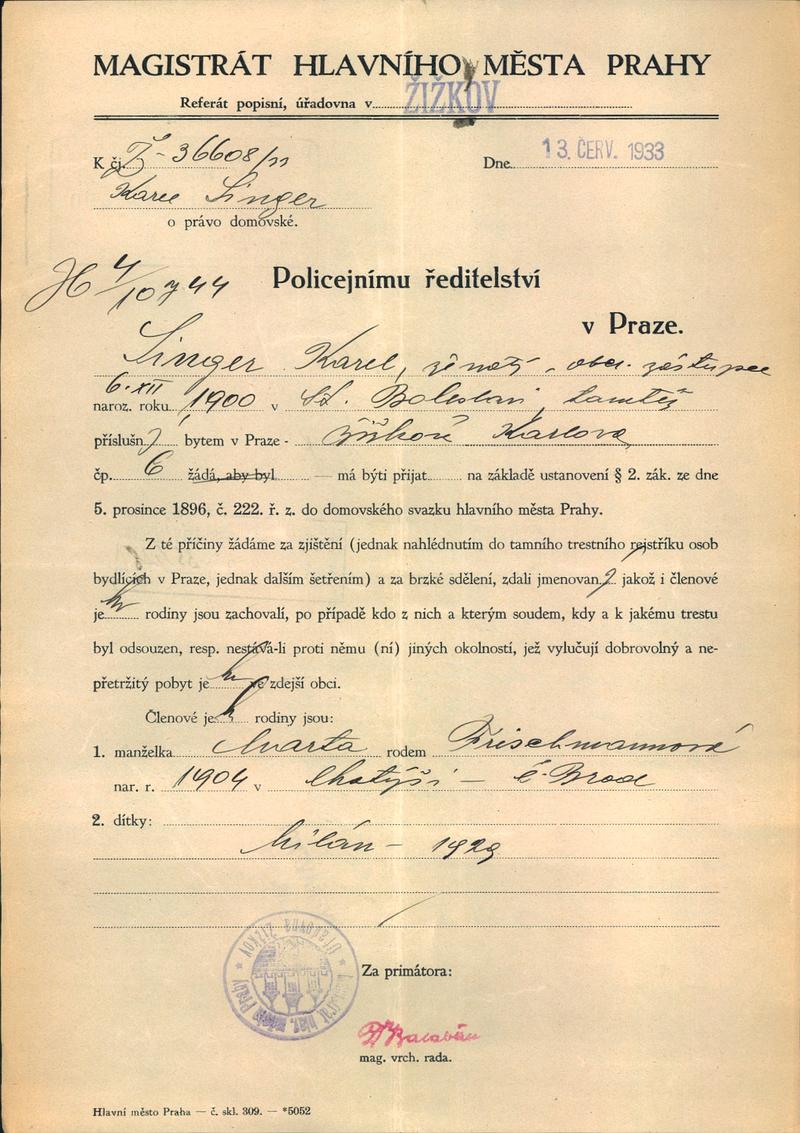 MAGISTRÁT HLAVNÍHO MĚSTA PRAHY
Referát popisní, úřadovna v ŽIŽKOV
K čj. Ž - 36608/
Dne 13. ČERV. 1933
Karel Singer
o právo domovské.
H 4/10 44
Policejnímu ředitelství
v Praze.
Singer Karel, ženatý, obch. zástupce
6. XII
naroz. roku 1900 v Ml. Boleslavi, tamtéž
příslušný bytem v Praze - Žižkově Karlova
čp. 6 žádá, aby byl — má býti přijat na základě ustanovení § 2. zák. ze dne
5. prosince 1896, č. 222. ř. z. do domovského svazku hlavního města Prahy.
Z té příčiny žádáme za zjištění (jednak nahlédnutím do tamního trestního rejstříku osob
bydlících v Praze, jednak dalším šetřením) a za brzké sdělení, zdali jmenovaný jakož i členové
jeho rodiny jsou zachovalí, po případě kdo z nich a kterým soudem, kdy a k jakému trestu
byl odsouzen, resp. nestává-li proti němu (ní) jiných okolností, jež vylučují dobrovolný a ne-
přetržitý pobyt jeho ve zdejší obci.
Členové jeho rodiny jsou:
1. manželka Marta rodem Frischmannová
nar. r. 1904 v Chotýši - Č. Brod
2. dítky:
Milán - 1929
Za primátora:
Dr Balabán
mag. vrch. rada.
Hlavní město Praha — č. skl. 309. — *5052